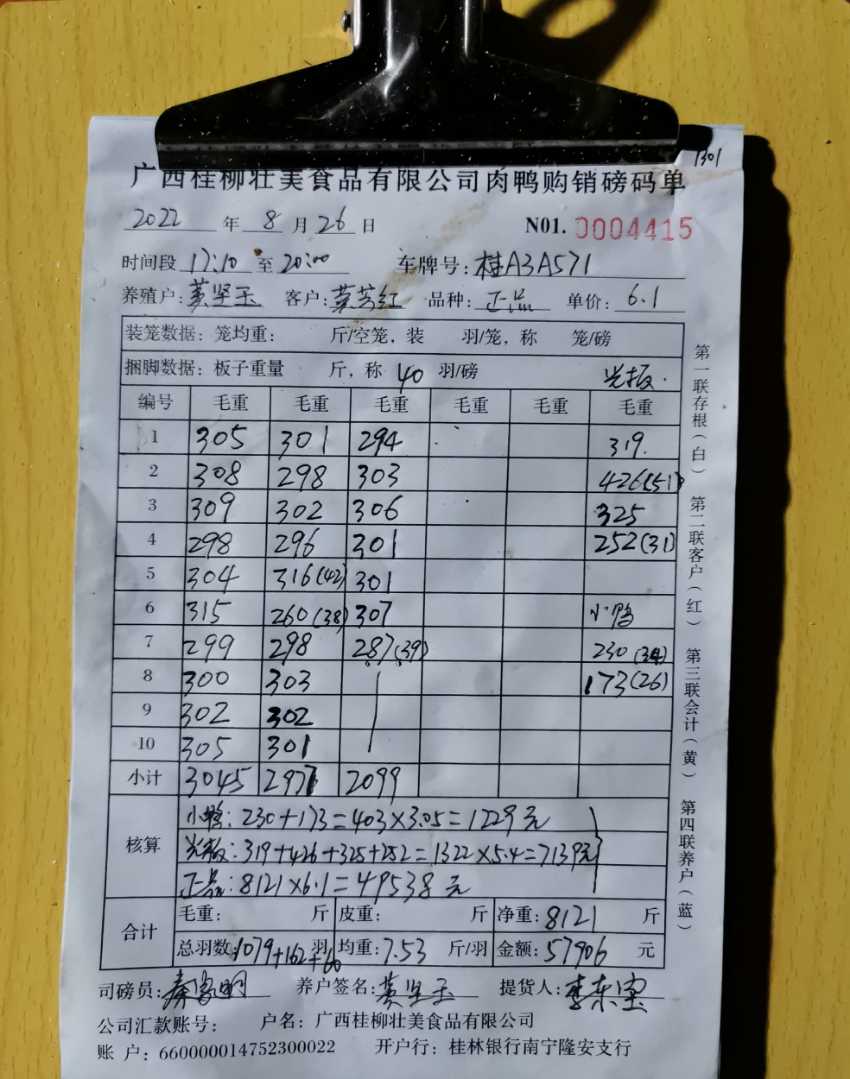 1301
广西桂柳壮美食品有限公司肉鸭购销磅码单
2022 年 8 月 26 日 N01. 0004415
时间段 17:10 至 20:00 车牌号: 桂A3A571
养殖户: 黄坚玉 客户: 莫芳红 品种: 正品 单价: 6.1
装笼数据: 笼均重: 斤/空笼, 装 羽/笼, 称 笼/磅
捆脚数据: 板子重量 斤, 称 40 羽/磅 光板.
编号 毛重 毛重 毛重 毛重 毛重 毛重
1 305 301 294 319.
2 308 298 303 426(51)
3 309 302 306 325
4 298 296 301 252(31)
5 304 316(42) 301
6 315 260(38) 307 小鸭
7 299 298 287(39) 230(34)
8 300 303 173(26)
9 302 302
10 305 301
小计 3045 2977 2099
核算
小鸭: 230+173=403×3.05=1229元
光板: 319+426+325+252=1322×5.4=7139元
正品: 8121×6.1=49538元
合计
毛重: 斤 皮重: 斤 净重: 8121 斤
总羽数: 1079+162+60 羽 均重: 7.53 斤/羽 金额: 57906 元
司磅员: 秦家明 养户签名: 黄坚玉 提货人: 李东宝
公司汇款账号: 户名: 广西桂柳壮美食品有限公司
账 户: 660000014752300022 开户行: 桂林银行南宁隆安支行
第一联存根(白) 第二联客户(红) 第三联会计(黄) 第四联养户(蓝)